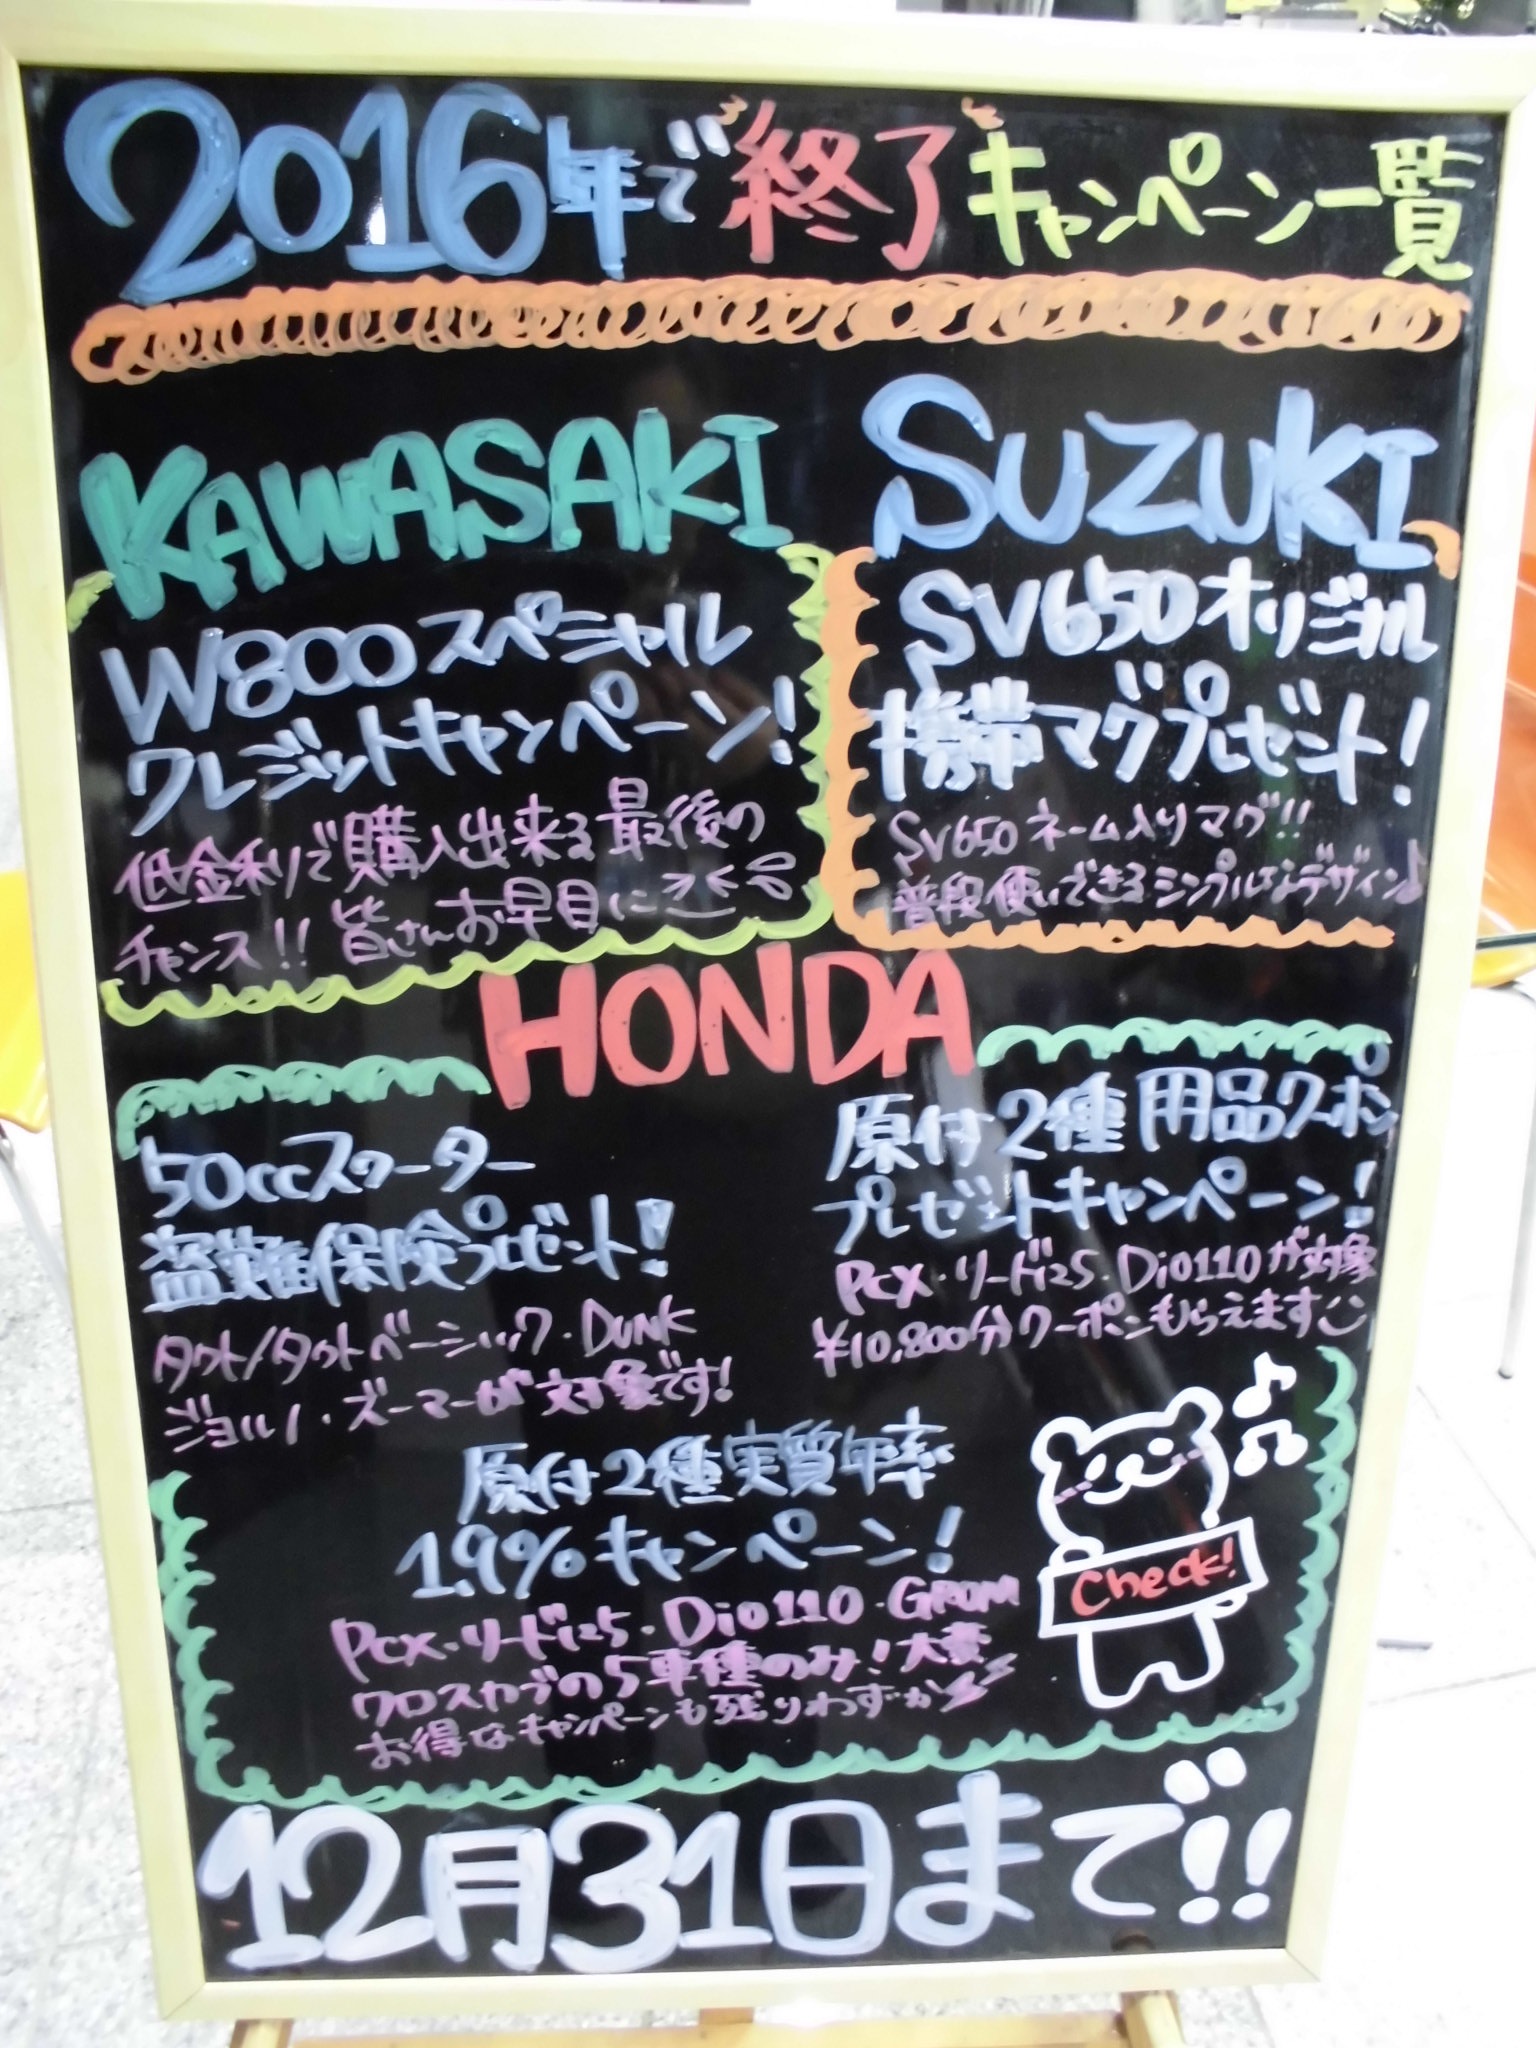 2016年で終了キャンペーン一覧
KAWASAKI
W800スペシャル
クレジットキャンペーン!
低金利で購入出来る最後の
チャンス!! 皆さんお早目に
SUZUKI
SV650オリジナル
携帯マグプレゼント!
SV650ネーム入りマグ!!
普段使いできるシンプルなデザイン♪
HONDA
50ccスクーター
盗難保険プレゼント!
タクト/タクトベーシック・DUNK
ジョルノ・ズーマーが対象です!
原付2種用品クーポン
プレゼントキャンペーン!
PCX・リード125・Dio110が対象
¥10,800分クーポンもらえます
原付2種実質年率
1.9%キャンペーン!
PCX・リード125・Dio110・GROM
クロスカブの5車種のみ!大変
お得なキャンペーンも残りわずか
Check!
12月31日まで!!